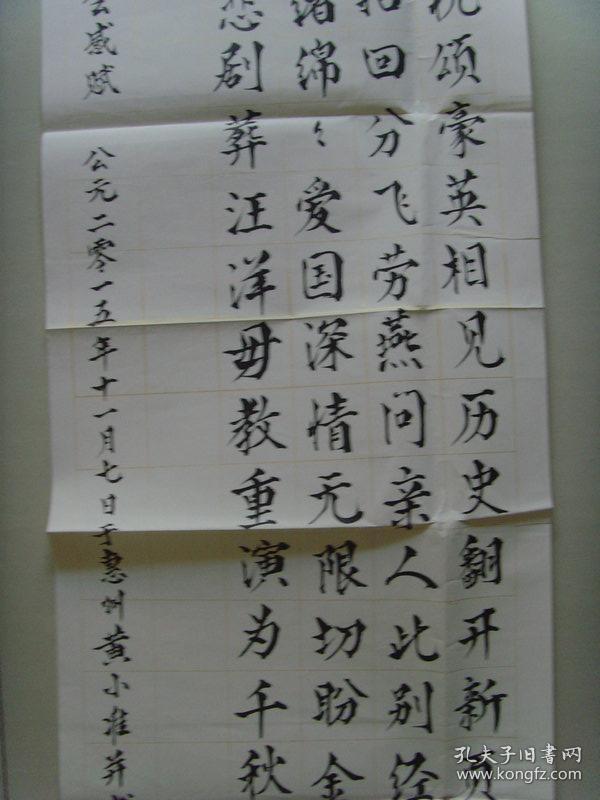 颂豪英相见历史翻开新页
招回分飞劳燕问亲人此别经
绪绵々爱国深情无限切盼金
悲剧葬汪洋毋教重演为千秋
感赋
公元二零一五年十一月七日于惠州黄小准并书
孔夫子旧书网
www.kongfz.com